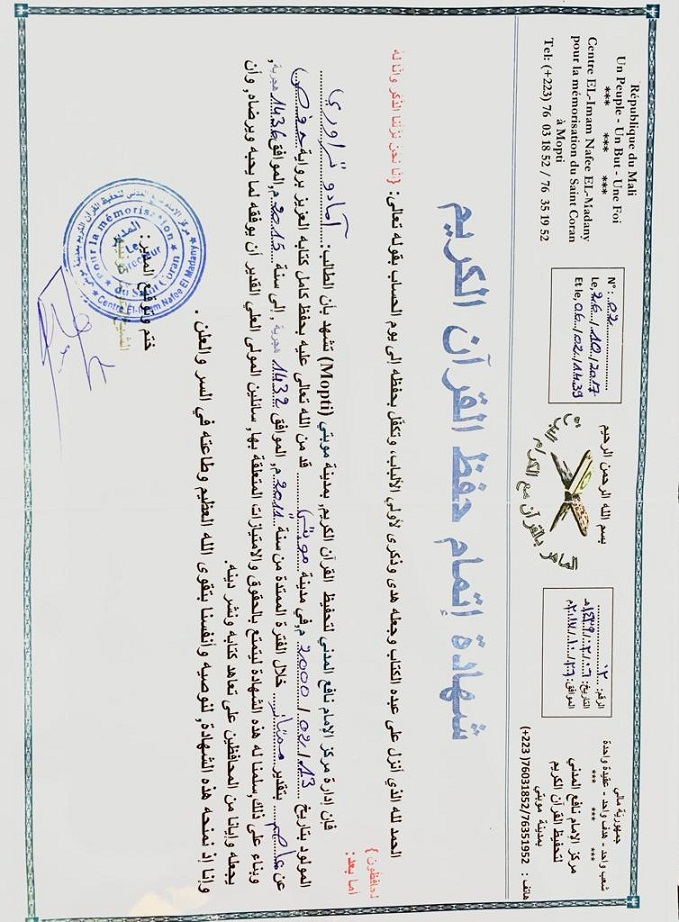 République du Mali
Un Peuple - Un But - Une Foi
*** *** ***
Centre EL-Imam Nafee EL-Madany
pour la mémorisation du Saint Coran
à Mopti
Tel: (+223) 76 03 18 52 / 76 35 19 52
N° : 02
Le, 26/10/2017
Et le, 06/02/1439
بسم الله الرحمن الرحيم
الماهر بالقرآن مع الكرام
الرقم: ٠٢
التاريخ: ٠٦/٠٢/١٤٣٩هـ
الموافق: ٢٦/١٠/٢٠١٧م
جمهورية مالي
شعب واحد - هدف واحد - عقيدة واحدة
*** *** ***
مركز الإمام نافع المدني
لتحفيظ القرآن الكريم
بمدينة موبتي
هاتف : 76031852/76351952 (+223)
شهادة إتمام حفظ القرآن الكريم
الحمد لله الذي أنزل على عبده الكتاب وجعله هدى وذكرى لأولي الألباب، وتكفل بحفظه إلى يوم الحساب بقوله تعالى: {إنا نحن نزلنا الذكر وإنا له
لحافظون}
أما بعد:
فإن إدارة مركز الإمام نافع المدني لتحفيظ القرآن الكريم بمدينة موبتي (Mopti) تشهد بأن الطالب: آمادو تراوري
المولود بتاريخ 13/02/2000م في مدينة موبتي قد من الله تعالى عليه بحفظ كامل كتابه العزيز برواية حفص
عن عاصم بتقدير ممتاز خلال الفترة الممتدة من سنة 2011م, الموافق 1432 هجرية , إلى سنة 2015م, الموافق 1436 هجرية,
وبناء على ذلك سلمنا له هذه الشهادة ليتمتع بالحقوق والامتيازات المتعلقة بها, سائلين المولى العلي القدير أن يوفقه لما يحبه ويرضاه, وأن
يجعله وإيانا من المحافظين على تعاهد كتابه ونشر دينه.
وإنا إذ نمنحه هذه الشهادة, لنوصيه وأنفسنا بتقوى الله العظيم وطاعته في السر والعلن .
ختم وتوقيع المدير:
المدير
Le Directeur
pour la mémorisation du Saint Coran
Centre EL-Imam Nafee El Madany